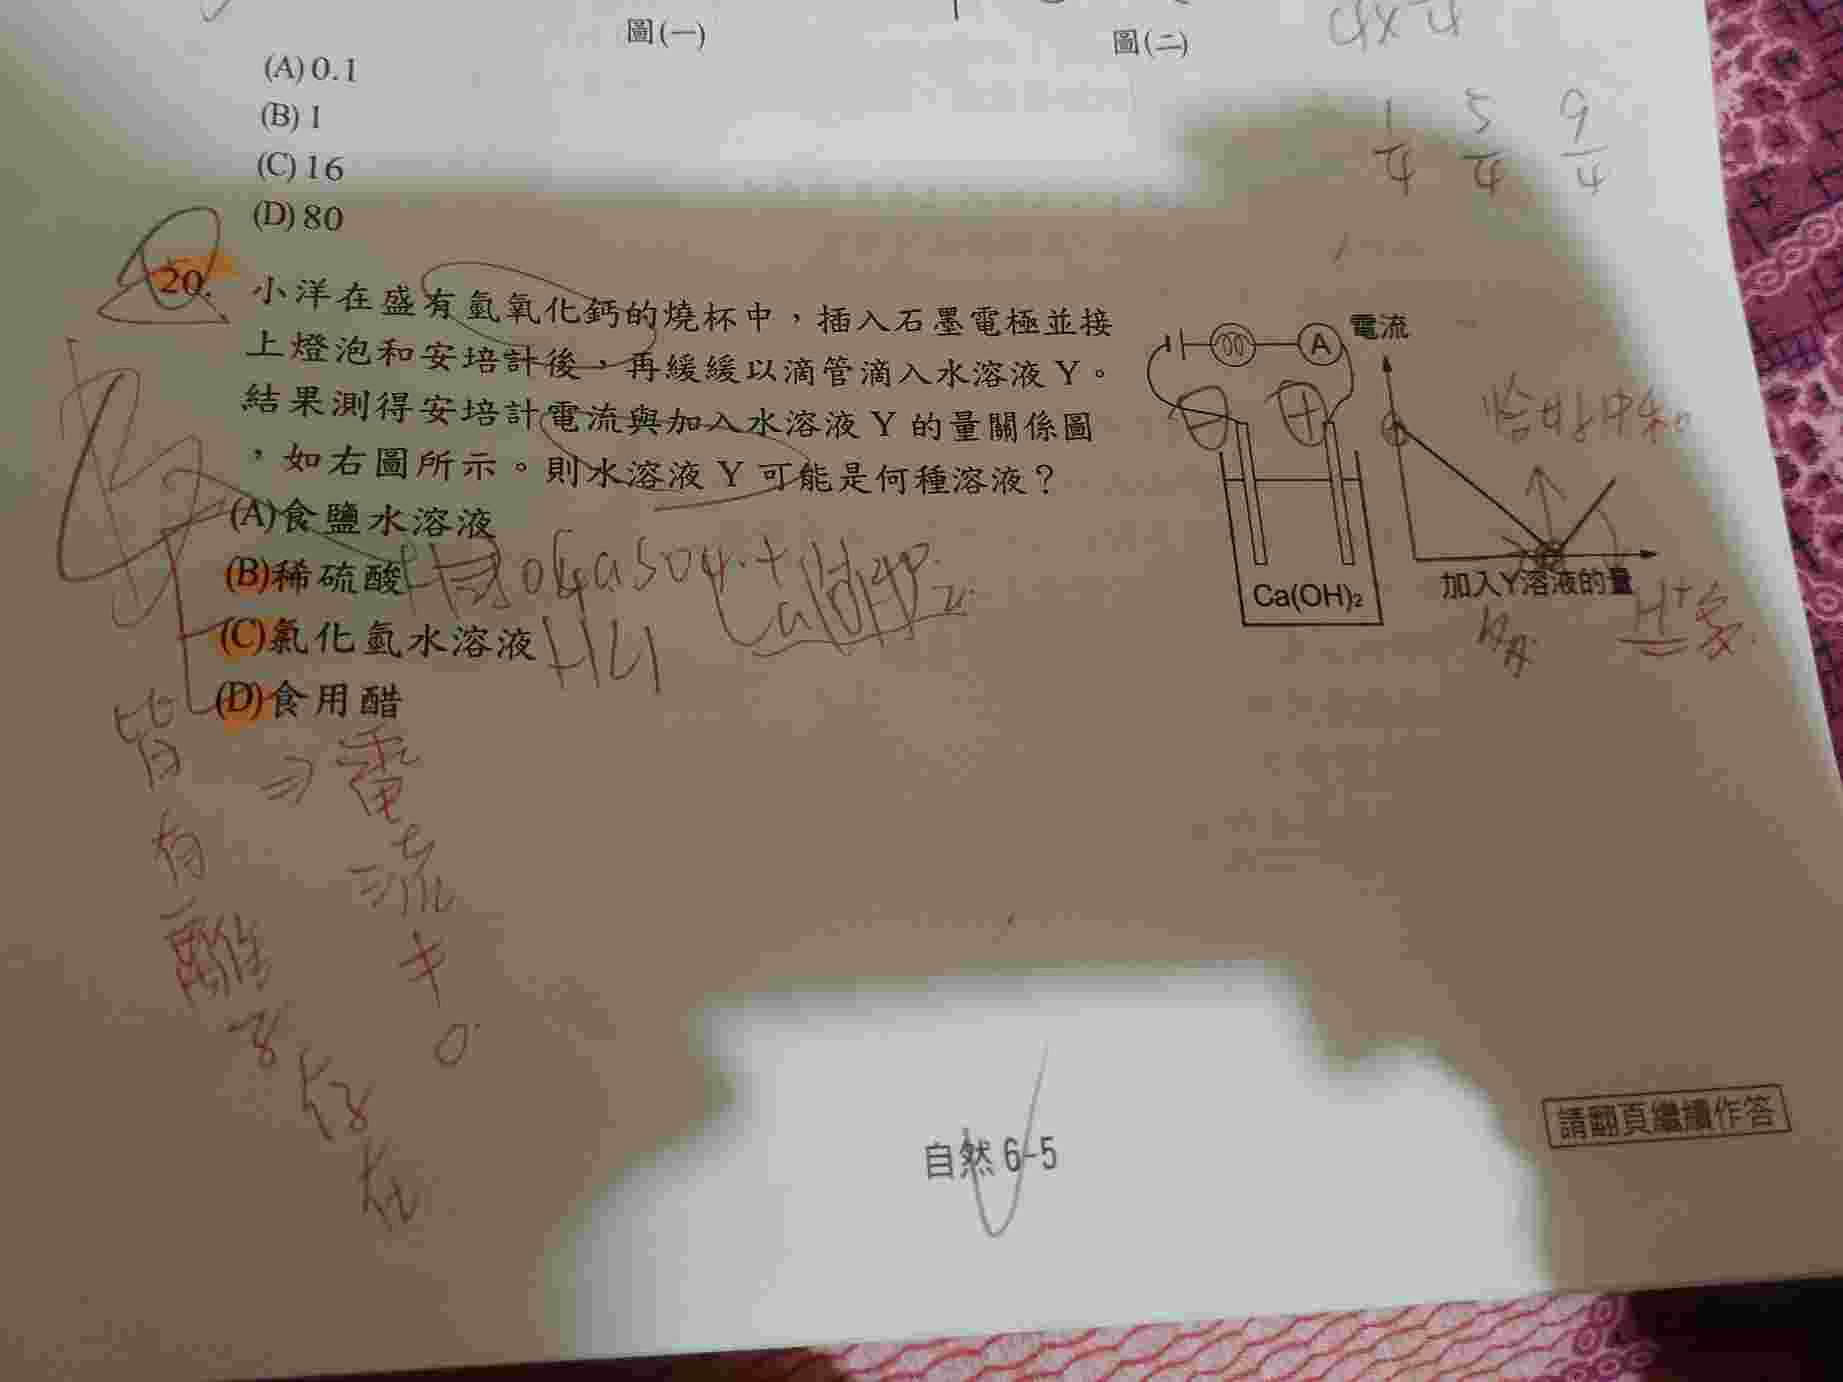 圖(一)
圖(二)
(A) 0.1
(B) 1
(C) 16
(D) 80
1/4 5/4 9/4
20. 小洋在盛有氫氧化鈣的燒杯中，插入石墨電極並接
上燈泡和安培計後，再緩緩以滴管滴入水溶液 Y。
結果測得安培計電流與加入水溶液 Y 的量關係圖
，如右圖所示。則水溶液 Y 可能是何種溶液？
(A)食鹽水溶液
(B)稀硫酸
(C)氯化氫水溶液
(D)食用醋
A
電流
Ca(OH)₂
加入Y溶液的量
恰好中和
H⁺多
皆有離子存在
⇒電流≠0
自然 6-5
請翻頁繼續作答